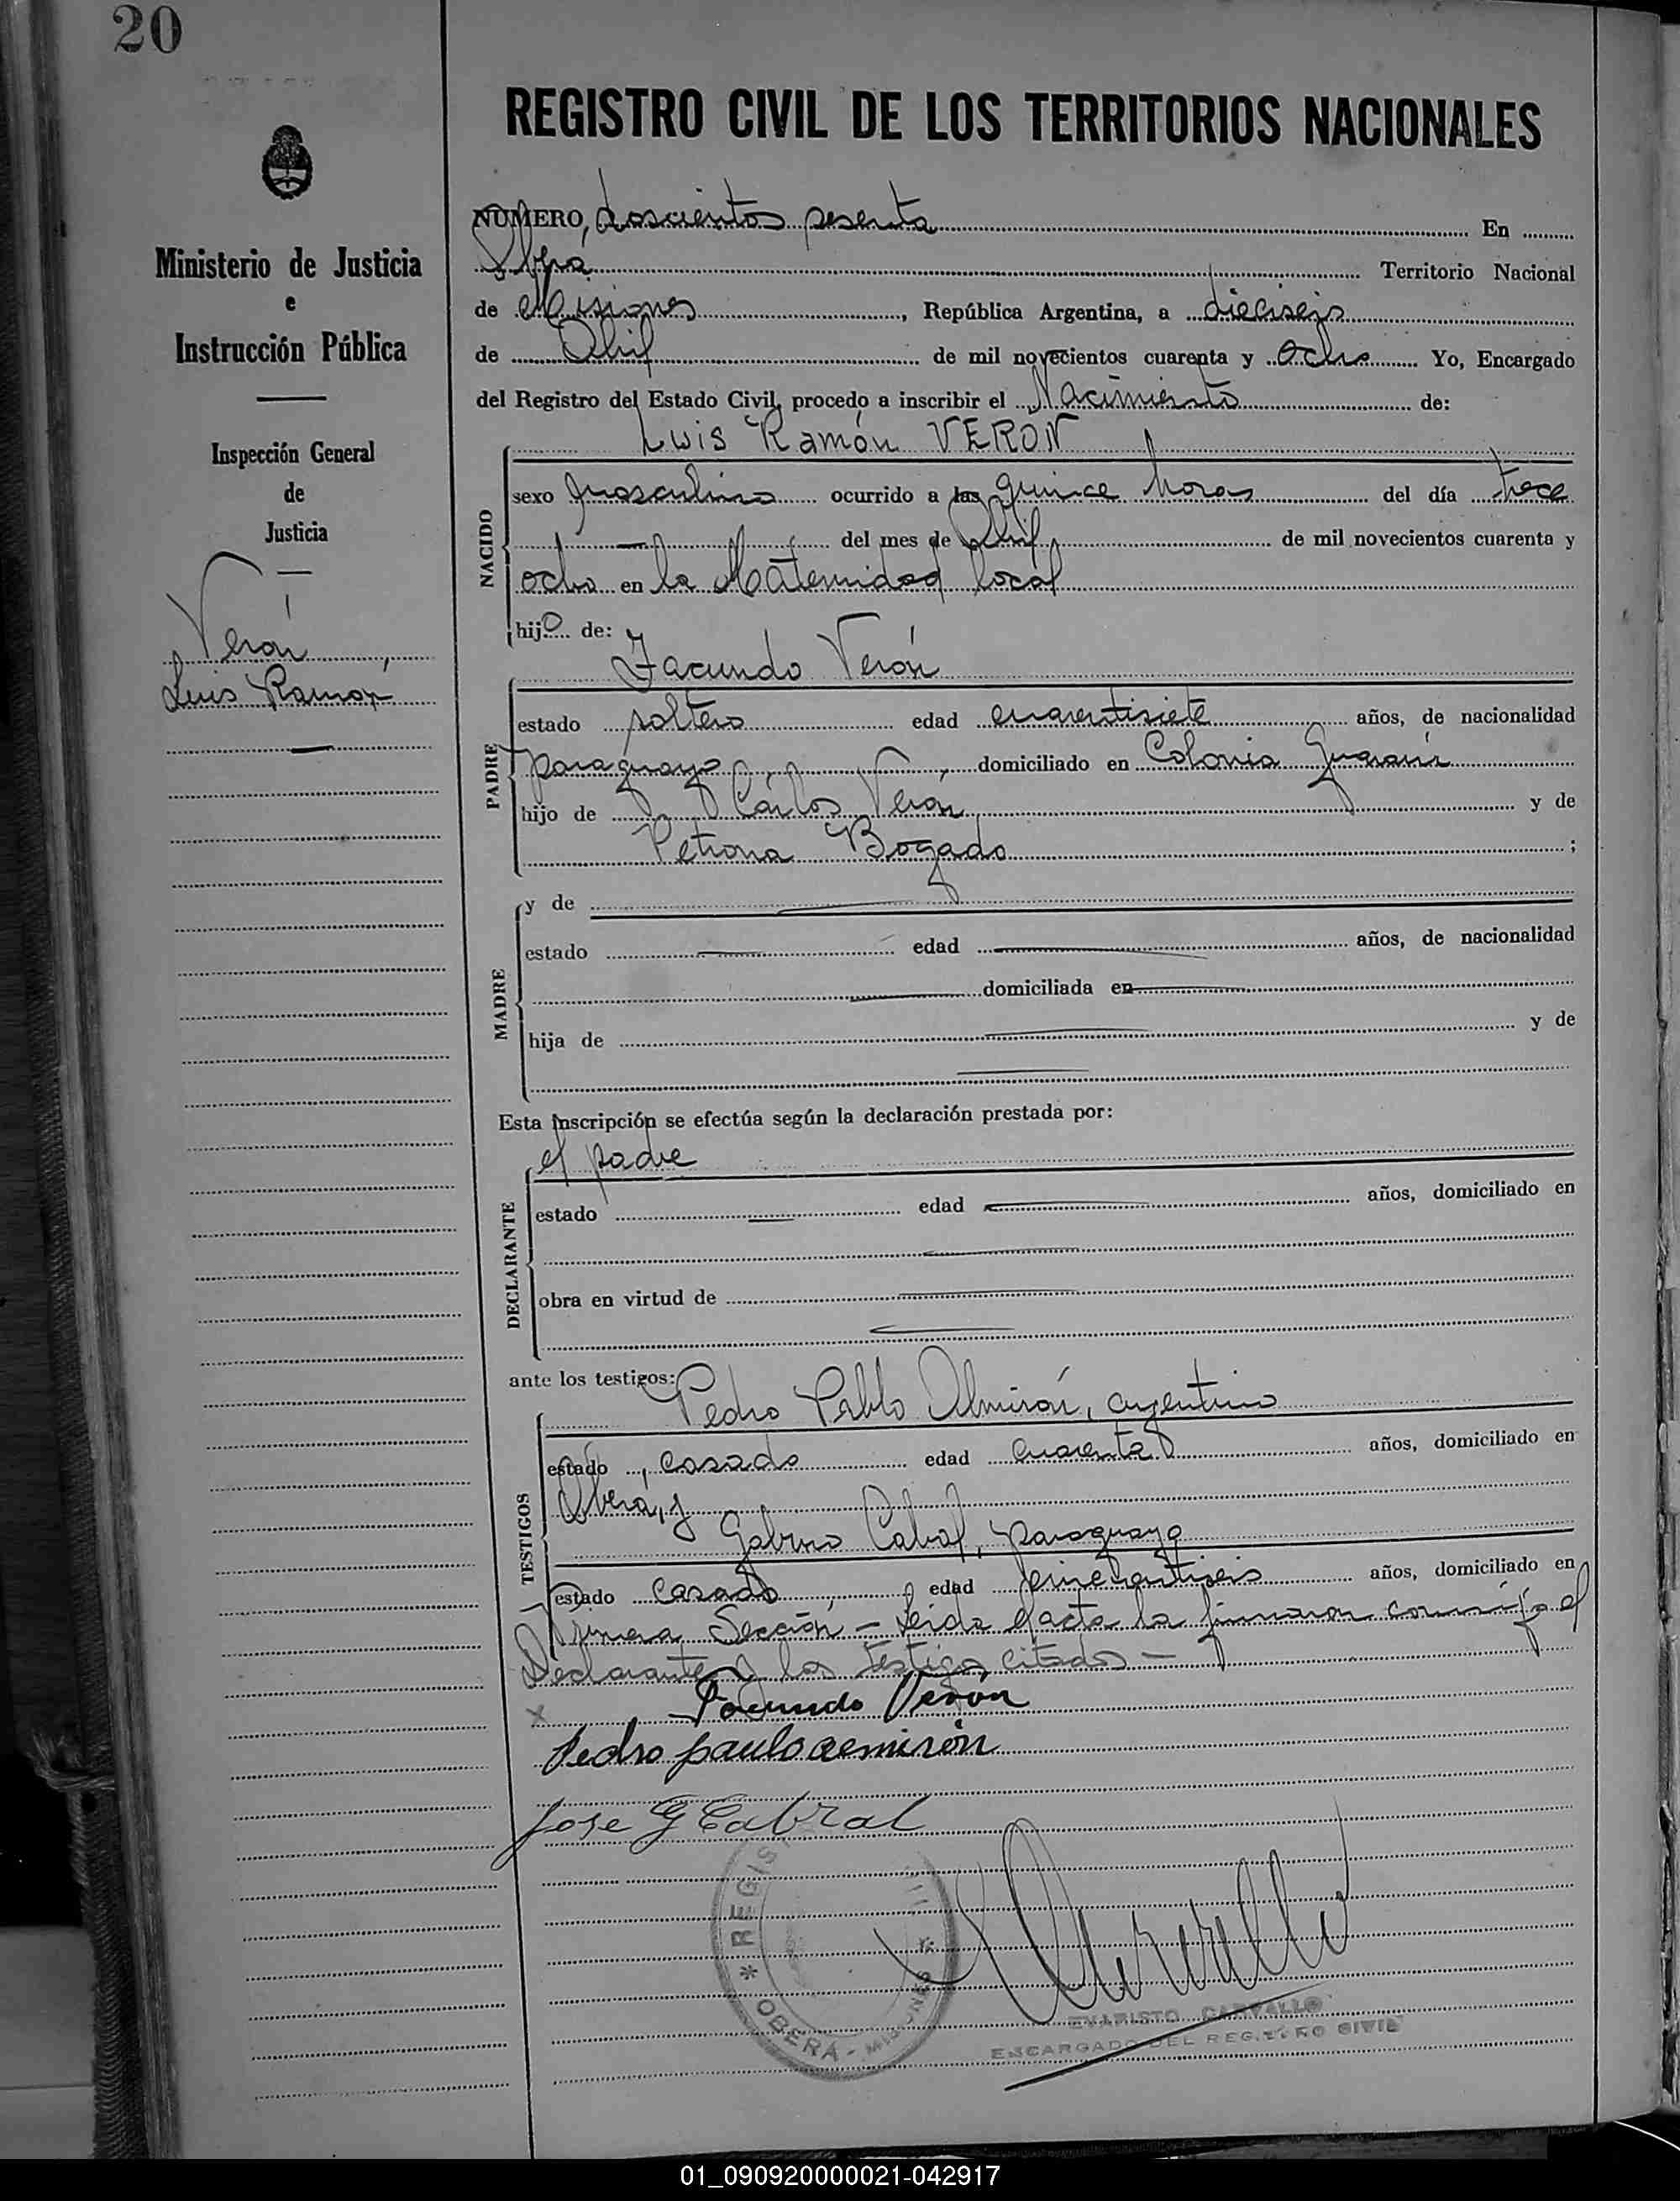 20
REGISTRO CIVIL DE LOS TERRITORIOS NACIONALES
Ministerio de Justicia
e
Instrucción Pública
Inspección General
de
Justicia
Verón,
Luis Ramón
NUMERO, doscientos sesenta En
Oberá Territorio Nacional
de Misiones, República Argentina, a dieciseis
de Abril de mil novecientos cuarenta y ocho Yo, Encargado
del Registro del Estado Civil, procedo a inscribir el Nacimiento de:
Luis Ramón VERON
NACIDO
sexo masculino ocurrido a las quince horas del día trece
del mes de Abril de mil novecientos cuarenta y
ocho en la Maternidad local
hijo de:
Facundo Verón
PADRE
estado soltero edad cuarentisiete años, de nacionalidad
paraguayo domiciliado en Colonia Guaraní
hijo de Cárlos Verón y de
Petrona Bogado ;
MADRE
y de
estado edad años, de nacionalidad
domiciliada en
hija de y de
Esta inscripción se efectúa según la declaración prestada por:
el padre
DECLARANTE
estado edad años, domiciliado en
obra en virtud de
ante los testigos:
Pedro Pablo Almirón, argentino
TESTIGOS
estado casado edad cuarenta años, domiciliado en
Oberá, y
Gabino Cabral, paraguayo
estado casado, edad cincuentiseis años, domiciliado en
Primera Sección - Leida el acta la firmaron conmigo el
Declarante y los testigos citados -
x Facundo Verón
Pedro paulo aemirón
Jose G Cabral
* REGIS
OBERÁ - MISIONES *
EVARISTO CARVALLO
ENCARGADO DEL REGISTRO CIVIL
01_090920000021-042917